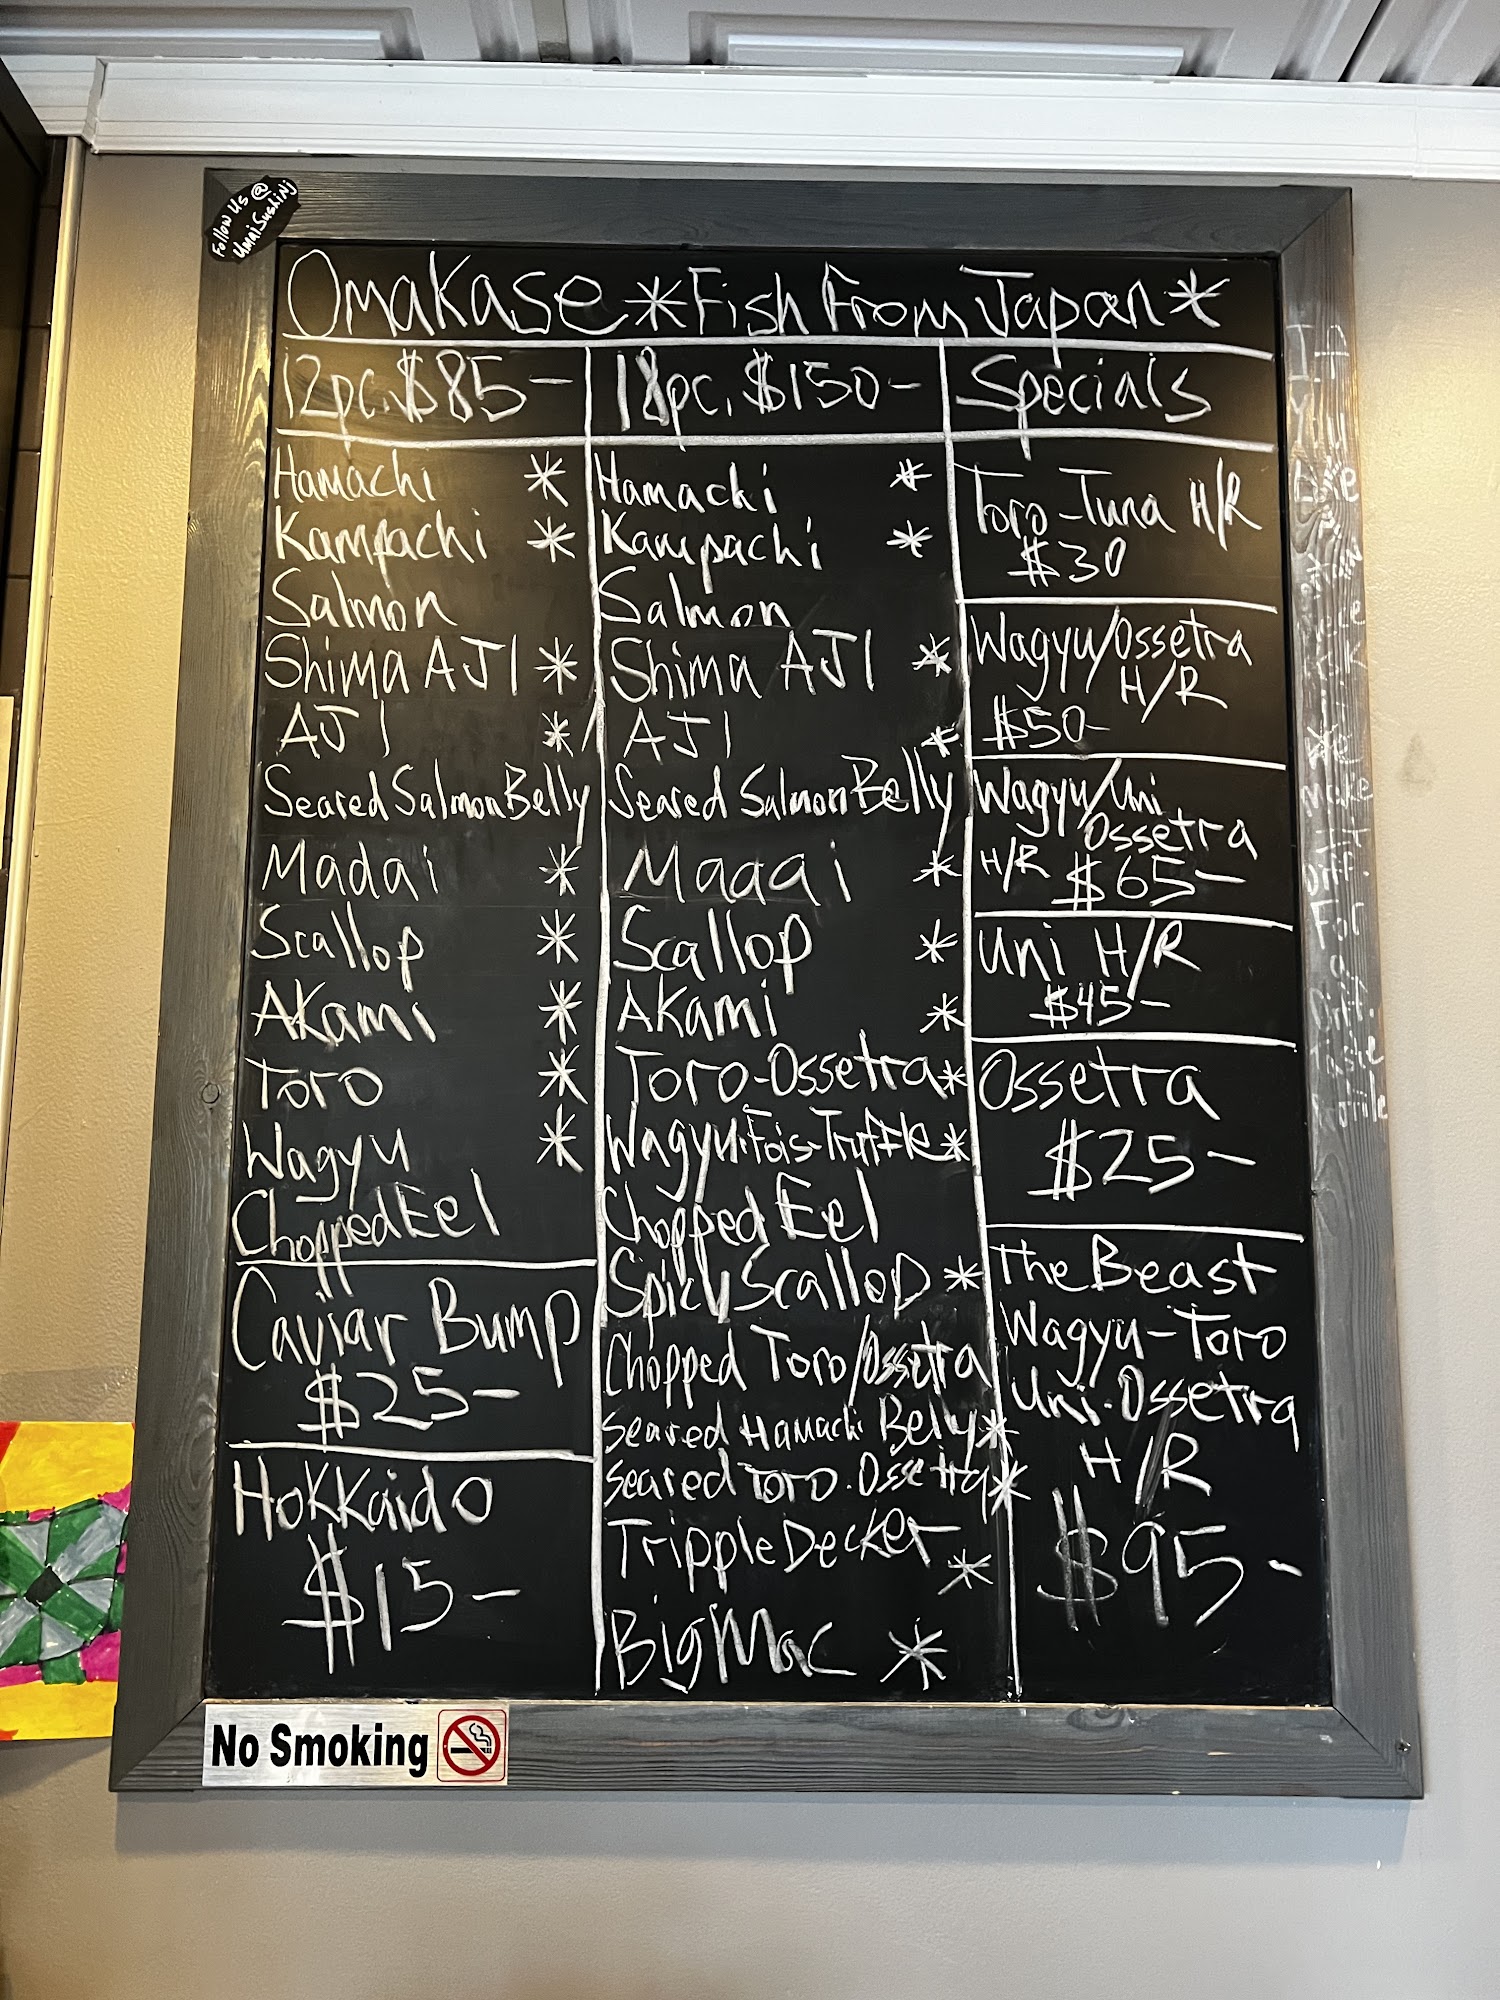 Follow Us @
UmaiSushiNJ
Omakase *Fish From Japan*
12pc. $85-
Hamachi *
Kampachi *
Salmon
Shima AJI *
AJI *
Seared Salmon Belly
Madai *
Scallop *
Akami *
Toro *
Wagyu *
Chopped Eel
Caviar Bump
$25-
Hokkaido
$15-
18pc. $150-
Hamachi *
Kampachi *
Salmon
Shima AJI *
AJI *
Seared Salmon Belly
Madai *
Scallop *
Akami *
Toro-Ossetra *
Wagyu-Fois-Truffle *
Chopped Eel
Spicy Scallop *
Chopped Toro/Ossetra
Seared Hamachi Belly *
Seared Toro-Ossetra *
Tripple Decker *
Big Mac *
Specials
Toro-Tuna H/R
$30
Wagyu/Ossetra
H/R
$50-
Wagyu/Uni
Ossetra
H/R $65-
Uni H/R
$45-
Ossetra
$25-
The Beast
Wagyu-Toro
Uni-Ossetra
H/R
$95-
You
We
Make
IT
Diff.
For
a
Diff.
No Smoking